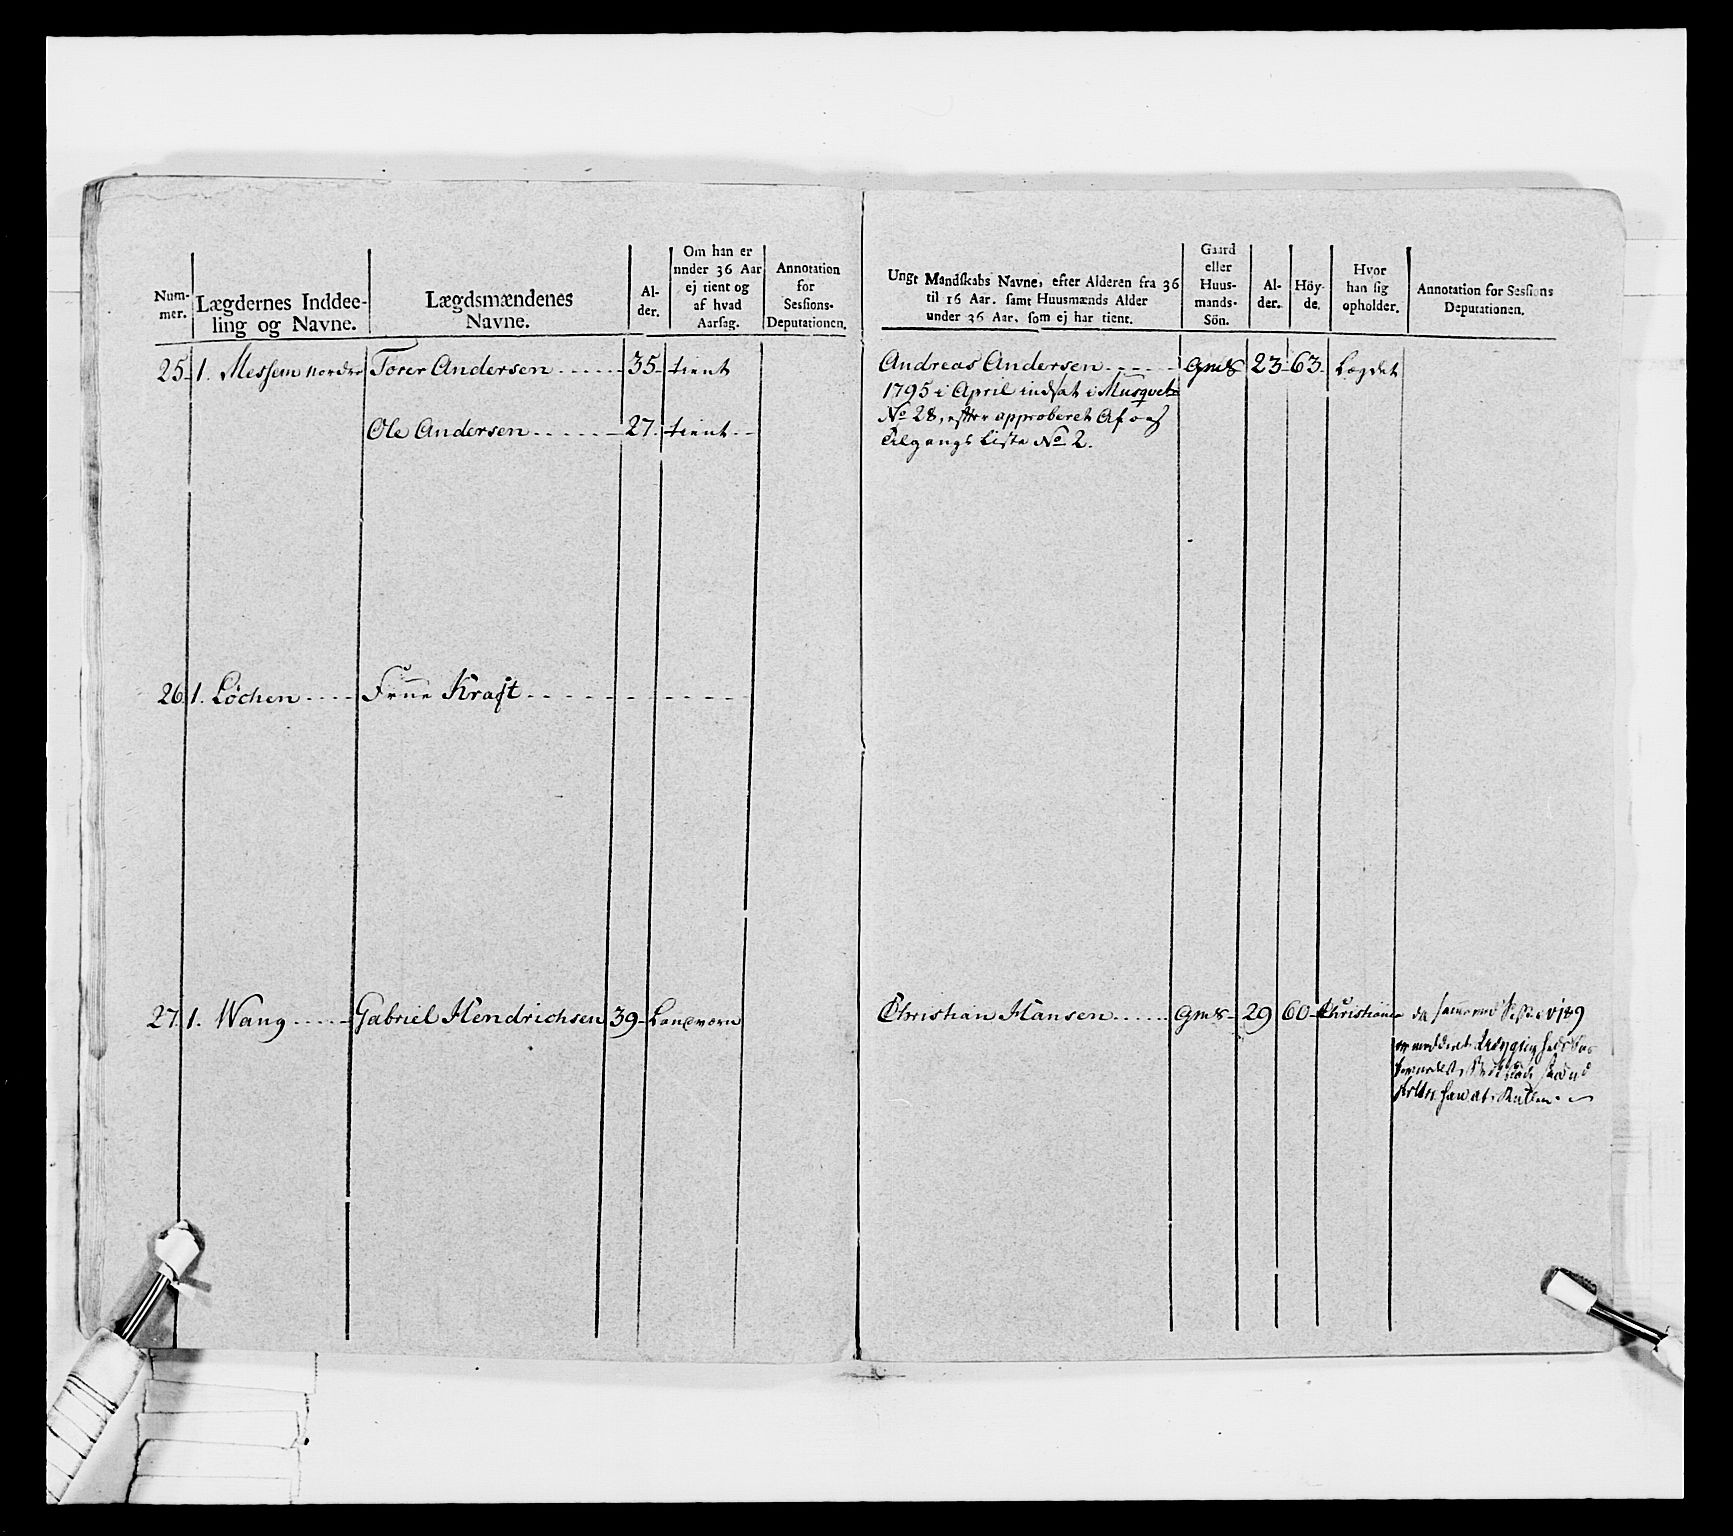 Num-
mer.
Lægdernes Inddee-
ling og Navne.
Lægdsmændenes
Navne.
Al-
der.
Om han er
nnder 36 Aar
ej tient og
af hvad
Aarsag.
Annotation
for
Sessions-
Deputationen.
25. 1. Messem nordre Torer Andersen 35 tient
Ole Andersen 27 tient
26. 1. Löchen Frue Kraft
27. 1. Wang Gabriel Hendrichsen 39 Landværn
Ungt Mandskabs Navne, efter Alderen fra 36
til 16 Aar. samt Huusmænds Alder
under 36 Aar, som ej har tient.
Gaard
eller
Huus-
mands-
Sön.
Al-
der.
Höy-
de.
Hvor
han sig
opholder.
Annotation for Sessions
Deputationen.
Andreas Andersen Gms 23 63 Lægdet
1795 i April indsat i Musquet
No 28, efter approberet Af og
Tilgangs Liste No 2.
Christian Hansen Gms 29 60 Christiania